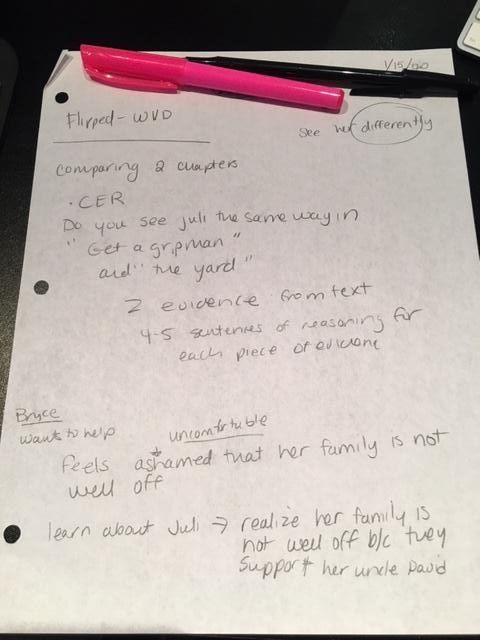 1/15/20
Flipped - WVD
see her differently
Comparing 2 chapters
• CER
Do you see juli the same way in
"Get a grip man"
and "the yard"
2 evidence from text
4-5 sentences of reasoning for
each piece of evidence
Bryce
wants to help
uncomfortable
feels ashamed that her family is not
well off
learn about Juli → realize her family is
not well off b/c they
support her uncle David